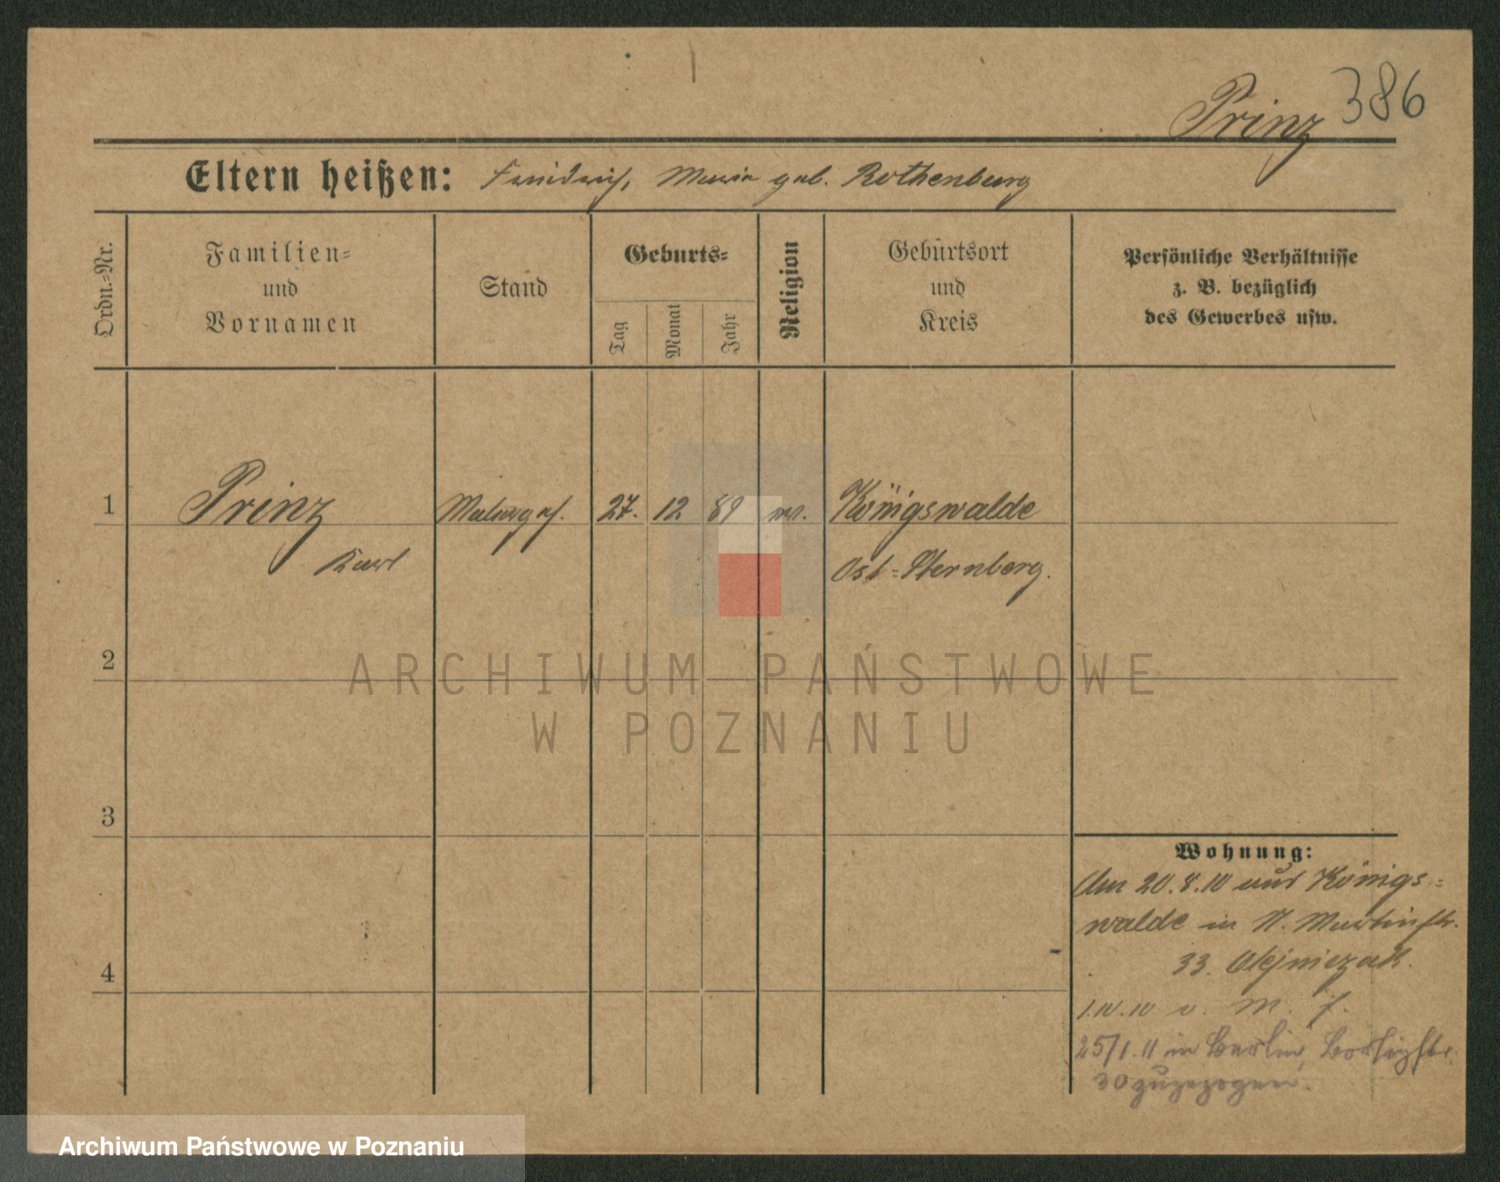 Prinz 386
Eltern heißen: Friedrich, Maria geb. Rothenburg
Ordn.-Nr.
Familien-
und
Vornamen
Stand
Geburts-
Tag
Monat
Jahr
Religion
Geburtsort
und
Kreis
Persönliche Verhältnisse
z. B. bezüglich
des Gewerbes usw.
1 Prinz Malergeh. 27. 12 89 ev. Königswalde
Karl Ost-Sternberg.
2
3
4
Wohnung:
Am 20.8.10 aus Königs-
walde in St. Martinstr.
33. Olejniczak.
25/1.11 in Berlin,
zugezogen.
ARCHIWUM PAŃSTWOWE
W POZNANIU
Archiwum Państwowe w Poznaniu